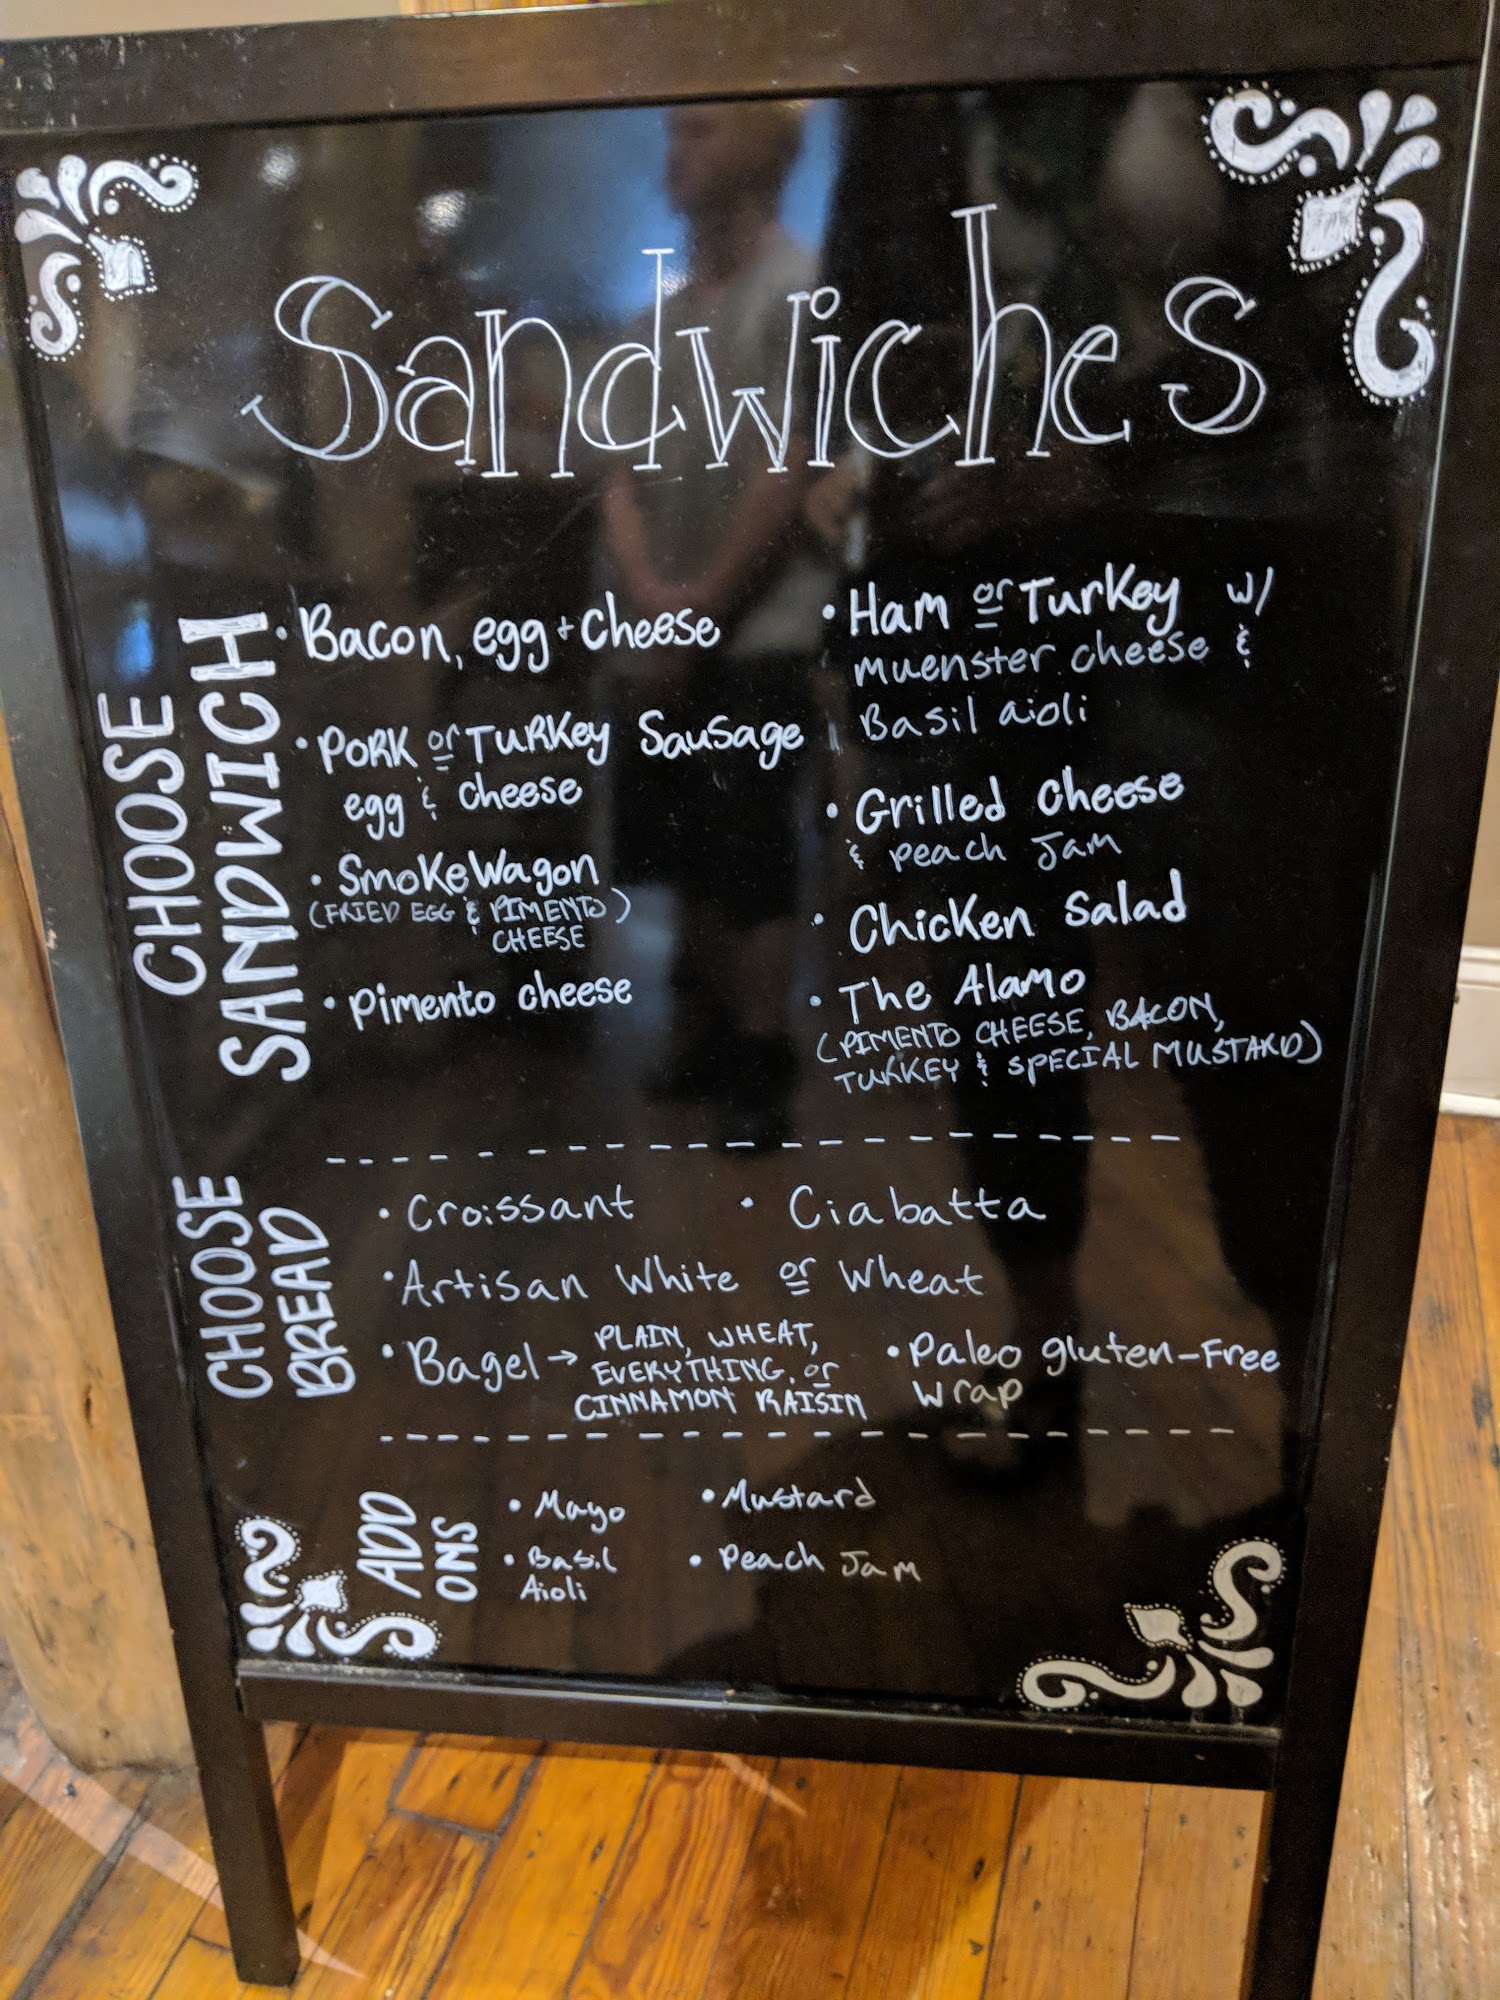 Sandwiches
CHOOSE
SANDWICH
• Bacon, egg + Cheese
• Pork or Turkey Sausage
egg & cheese
• SmokeWagon
(FRIED EGG & PIMENTO)
CHEESE
• Pimento cheese
• Ham or Turkey w/
muenster cheese &
Basil aioli
• Grilled Cheese
& peach Jam
• Chicken Salad
• The Alamo
(PIMENTO CHEESE, BACON,
TURKEY & SPECIAL MUSTARD)
CHOOSE
BREAD
• Croissant • Ciabatta
• Artisan White or Wheat
• Bagel → PLAIN, WHEAT,
EVERYTHING, or
CINNAMON RAISIN
• Paleo gluten-Free
Wrap
ADD
ONS
• Mayo • Mustard
• Basil
Aioli
• Peach Jam